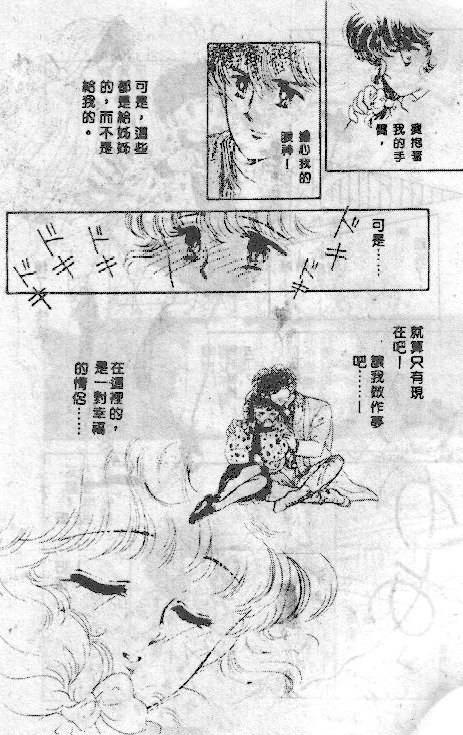 擁抱著
我的手
臂，
擔心我的
眼神—
可是，這些
都是給姊姊
的，而不是
給我的。
可是……
ズキ
ズキ
ズキ
ズキ
ズキ
就算只有現
在吧—
讓我做作夢
吧……—
在這裡的，
是一對幸福
的情侶……